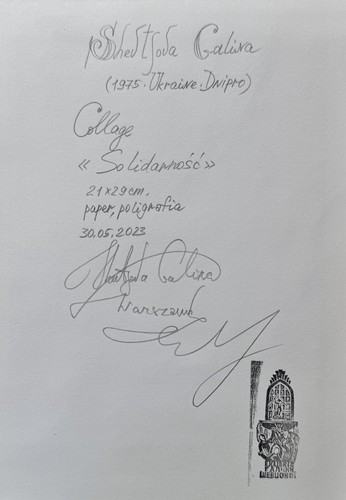 Shevtsova Galina
(1975. Ukraine. Dnipro)
Collage
« Solidarność »
21x29cm.
paper, poligrafia
30.05.2023
Galina
Warszawa